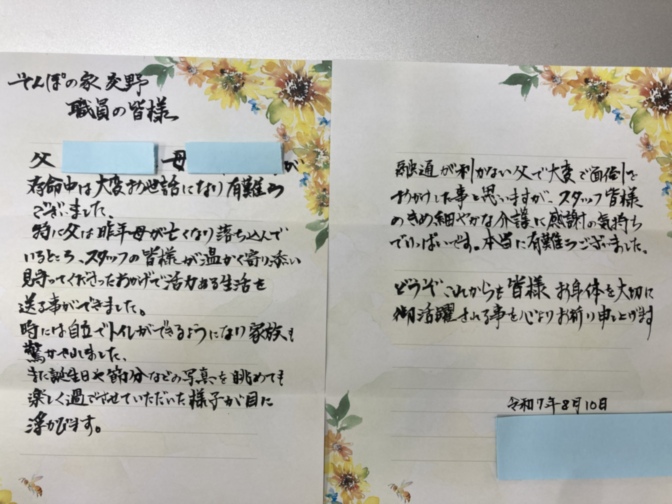 そんぽの家 交野
職員の皆様
父 母 が
寿命中は大変お世話になり有難う
ございました。
特に父は昨年母が亡くなり落ち込んで
いるところ、スタッフの皆様が温かく寄り添い
見守ってくださったおかげで活力ある生活を
送る事ができました。
時には自立でトイレができるようになり家族も
驚かされました。
また誕生日や節分などの写真を眺めても
楽しく過ごさせていただいた様子が目に
浮かびます。
融通が利かない父で大変で面倒を
おかけした事と思いますが、スタッフ皆様
のきめ細やかな介護に感謝の気持ち
でいっぱいです。本当に有難うございました。
どうぞこれからも皆様お身体を大切に
御活躍される事を心よりお祈り申し上げます
令和7年8月10日